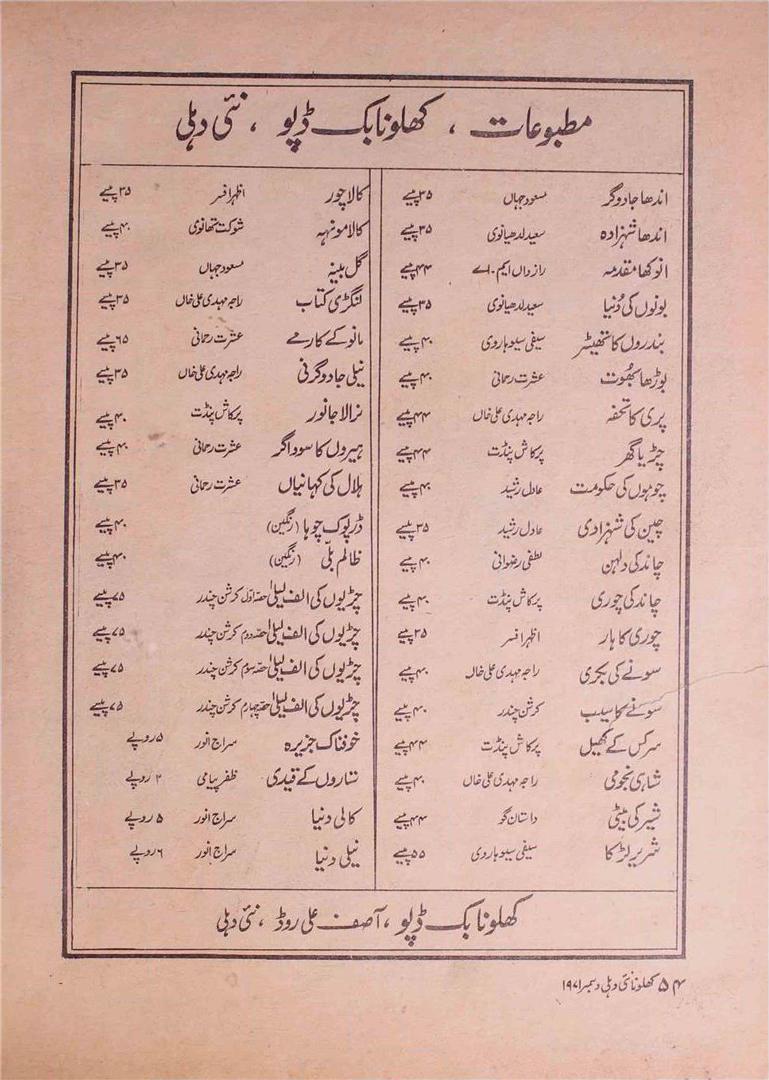 مطبوعات ، کھلونا بک ڈپو ، نئی دہلی
اندھا جادوگر مسعود جہاں ۳۵ پیسے
اندھا شہزادہ سعید لدھیانوی ۳۵ پیسے
انوکھا مقدمہ رازداں ایم۔اے ۴۴ پیسے
بونوں کی دُنیا سعید لدھیانوی ۳۵ پیسے
بندروں کا تھیٹر سیفی سیوہاروی ۴۰ پیسے
بوڑھا بھوت عشرت رحمانی ۴۰ پیسے
پری کا تحفہ راجہ مہدی علی خاں ۴۴ پیسے
چڑیا گھر پرکاش پنڈت ۴۴ پیسے
چوہوں کی حکومت عادل رشید ۴۰ پیسے
چین کی شہزادی عادل رشید ۳۵ پیسے
چاند کی دلہن لطفی رضوانی ۴۰ پیسے
چاند کی چوری پرکاش پنڈت ۴۰ پیسے
چوری کا ہار اظہر افسر ۳۵ پیسے
سونے کی بکری راجہ مہدی علی خاں ۴۰ پیسے
سونے کا سیب کرشن چندر ۴۰ پیسے
سرکس کے کھیل پرکاش پنڈت ۴۴ پیسے
شاہی نجومی راجہ مہدی علی خاں ۴۰ پیسے
شیر کی بیٹی داستان گو ۴۴ پیسے
شریر لڑکا سیفی سیوہاروی ۵۵ پیسے
کالا چور اظہر افسر ۳۵ پیسے
کالا مونہہ شوکت تھانوی ۴۰ پیسے
گل بینہ مسعود جہاں ۳۵ پیسے
لنگڑی کتاب راجہ مہدی علی خاں ۳۵ پیسے
مانو کے کارمے عشرت رحمانی ۶۵ پیسے
نیلی جادوگرنی راجہ مہدی علی خاں ۳۵ پیسے
نرالا جانور پرکاش پنڈت ۴۰ پیسے
ہیروں کا سوداگر عشرت رحمانی ۴۰ پیسے
ہلال کی کہانیاں عشرت رحمانی ۳۵ پیسے
ڈرپوک چوہا (رنگین) ۴۰ پیسے
ظالم بلّی (رنگین) ۴۰ پیسے
چڑیوں کی الف لیلیٰ حصہ اوّل کرشن چندر ۷۵ پیسے
چڑیوں کی الف لیلیٰ حصہ دوم کرشن چندر ۷۵ پیسے
چڑیوں کی الف لیلیٰ حصہ سوم کرشن چندر ۷۵ پیسے
چڑیوں کی الف لیلیٰ حصہ چہارم کرشن چندر ۷۵ پیسے
خوفناک جزیرہ سراج انور ۵ روپے
ستاروں کے قیدی ظفر پیامی ۲ روپے
کالی دنیا سراج انور ۵ روپے
نیلی دنیا سراج انور ۶ روپے
کھلونا بک ڈپو ، آصف علی روڈ ، نئی دہلی
۵۴ کھلونا نئی دہلی دسمبر ۱۹۷۱